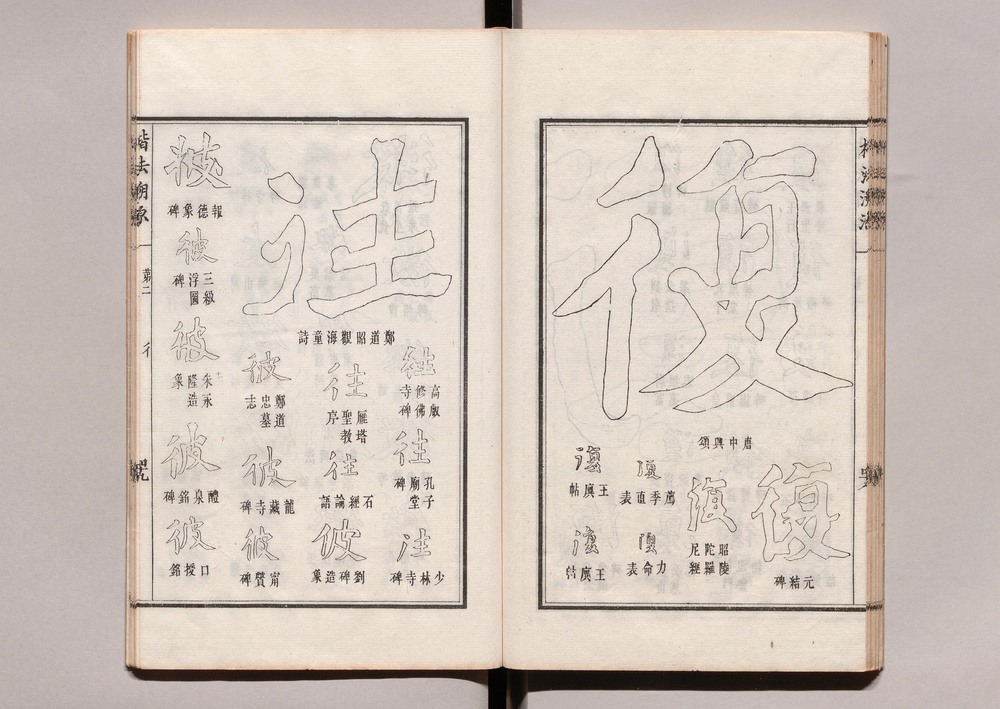 復
唐中興頌
復
元結碑
復
昭陵陀羅尼經
復
薦季直表
復
力命表
復
王廙帖
復
王廙帖
往
鄭道昭觀海童詩
往
高叡修佛寺碑
往
孔子廟堂碑
往
少林寺碑
往
雁塔聖教序
往
石經論語
彼
劉碑造象
彼
鄭道忠墓志
彼
龍藏寺碑
彼
甯贙碑
彼
報德象碑
彼
三級浮圖碑
彼
朱永隆造象
彼
醴泉銘碑
彼
口授銘
楷法溯原
第二
彳